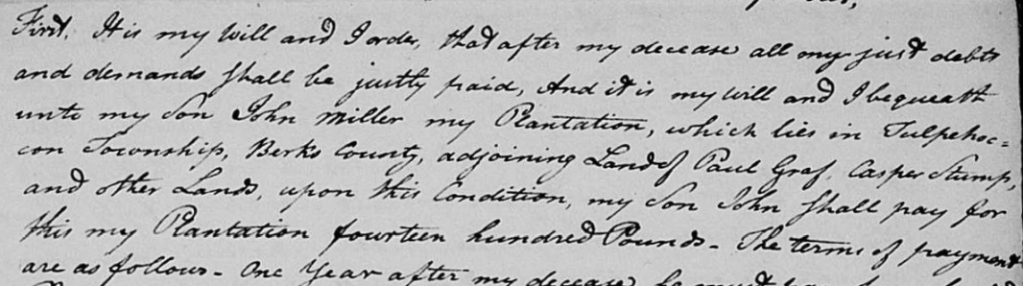 First, It is my Will and I order, that after my decease all my just debts
and demands shall be justly paid, And it is my Will and I bequeath
unto my Son John Miller my Plantation, which lies in Tulpehoc=
con Township, Berks County, adjoining Land of Paul Graf, Casper Stump,
and other Lands, upon this Condition, my Son John shall pay for
this my Plantation fourteen hundred Pounds - The terms of payment
are as follows - One Year after my decease he must